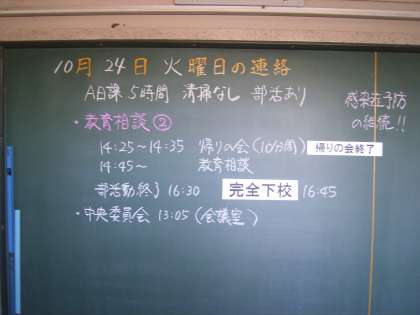 10月 24日 火曜日の連絡
A日課 5時間 清掃なし 部活あり
感染症予防
の継続!!
・教育相談②
14:25～14:35 帰りの会(10分間) 帰りの会終了
14:45～ 教育相談
部活動終了 16:30 完全下校 16:45
・中央委員会 13:05 (会議室)